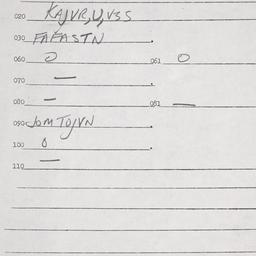 020 KAJVR,U,VSS
030 FAFASTN .
060 0 061 0
070 — .
080 — 081 —
090 JOMTOJVN .
100 0 .
110 —